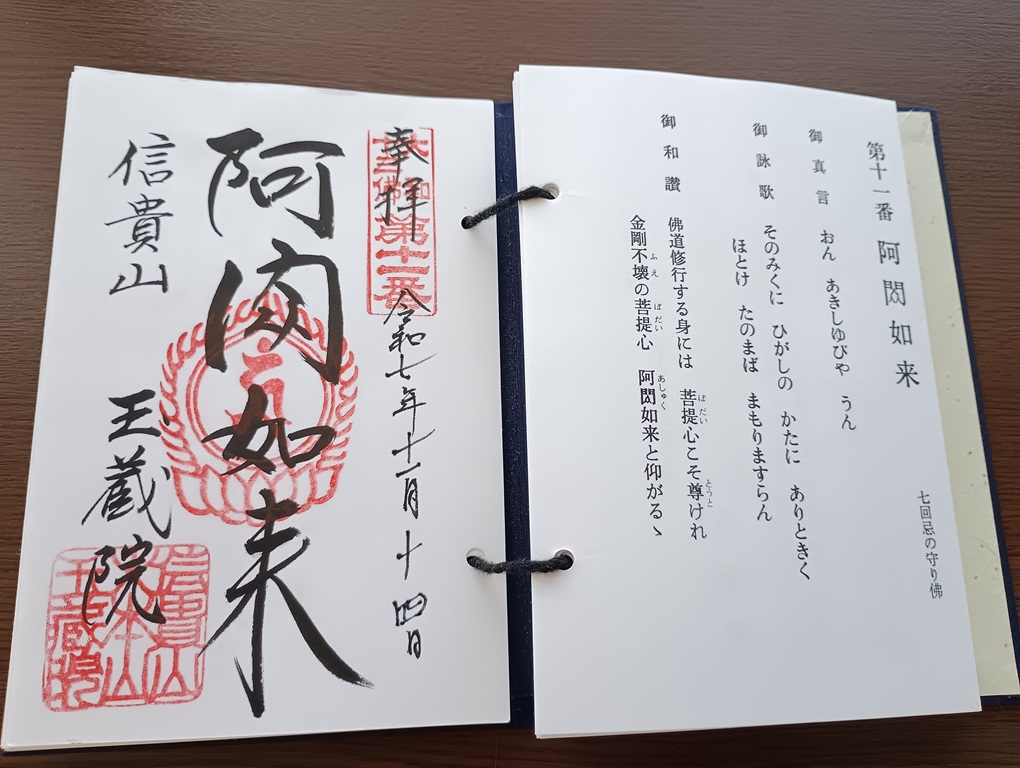 第十一番 阿閦如来
七回忌の守り佛
御真言 おん あきしゆびや うん
御詠歌 そのみくに ひがしの かたに ありときく
ほとけ たのまば まもりますらん
御和讃 佛道修行する身には 菩提心こそ尊けれ
ぼだい
とうと
金剛不壊の菩提心 阿閦如来と仰がるゝ
ふえ
ぼだい
あしゅく
奉拝 令和七年十一月十四日
第十一番
阿閦如来
信貴山 玉蔵院
信貴山
大本山
玉蔵院